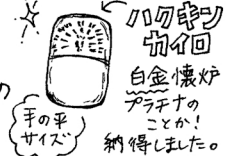 ハクキン
カイロ
白金懐炉
プラチナの
ことか!
納得しました。
手の平
サイズ